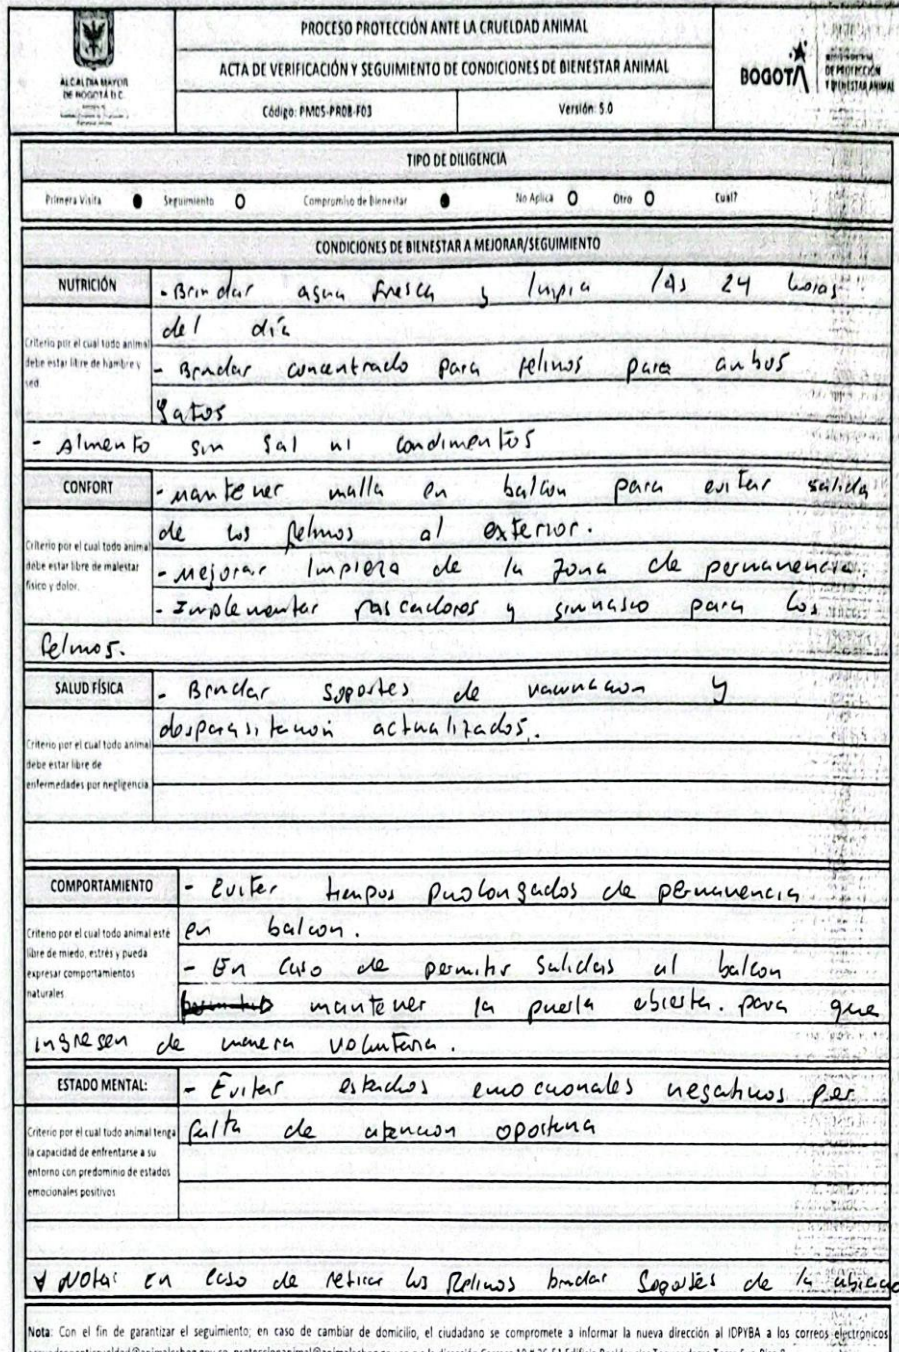 PROCESO PROTECCIÓN ANTE LA CRUELDAD ANIMAL
ACTA DE VERIFICACIÓN Y SEGUIMIENTO DE CONDICIONES DE BIENESTAR ANIMAL
Código: PM05-PR08-F03 Versión: 5.0
ALCALDÍA MAYOR
DE BOGOTÁ D.C.
BOGOTÁ
DE PROTECCIÓN
Y BIENESTAR ANIMAL
TIPO DE DILIGENCIA
Primera Visita Seguimiento Compromiso de Bienestar No Aplica Otro Cual?
CONDICIONES DE BIENESTAR A MEJORAR/SEGUIMIENTO
NUTRICIÓN
Criterio por el cual todo animal
debe estar libre de hambre y
sed.
- Brindar agua fresca y limpia las 24 horas
del día
- Brindar concentrado para felinos para ambos
gatos
- Alimento sin sal ni condimentos
CONFORT
Criterio por el cual todo animal
debe estar libre de malestar
físico y dolor.
- mantener malla en balcon para evitar salida
de los felinos al exterior.
- Mejorar limpieza de la zona de permanencia.
- Implementar rascadores y gimnasio para los
felinos.
SALUD FÍSICA
Criterio por el cual todo animal
debe estar libre de
enfermedades por negligencia
- Brindar soportes de vacunacion y
desparasitación actualizados.
COMPORTAMIENTO
Criterio por el cual todo animal esté
libre de miedo, estrés y pueda
expresar comportamientos
naturales
- Evitar tiempos prolongados de permanencia
en balcon.
- En caso de permitir salidas al balcon
mantener la puerta abierta. para que
ingresen de manera voluntaria.
ESTADO MENTAL:
Criterio por el cual todo animal tenga
la capacidad de enfrentarse a su
entorno con predominio de estados
emocionales positivos
- Evitar estados emocionales negativos por
falta de atencion oportuna
Nota: en caso de retirar los felinos brindar soportes de la
Nota: Con el fin de garantizar el seguimiento; en caso de cambiar de domicilio, el ciudadano se compromete a informar la nueva dirección al IDPYBA a los correos electrónicos